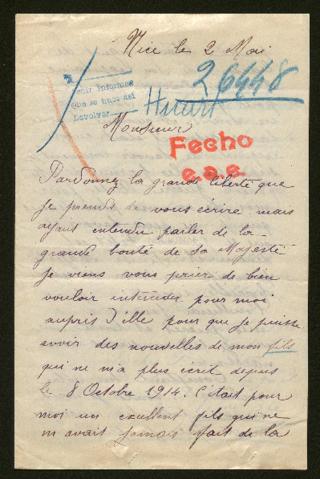 Nice le 2 Mai
26448
Huart
Devolver
Monsieur
Fecho
e.a.e.
Pardonnez la grande liberté que
je prends de vous écrire mais
ayant entendu parler de la
grande bonté de Sa Majesté
je viens vous prier de bien
vouloir intercéder pour moi
auprès d'elle pour que je puisse
avoir des nouvelles de mon fils
qui ne m'a plus écrit depuis
le 8 Octobre 1914. C'était pour
moi un excellent fils qui ne
m'avait jamais fait de la